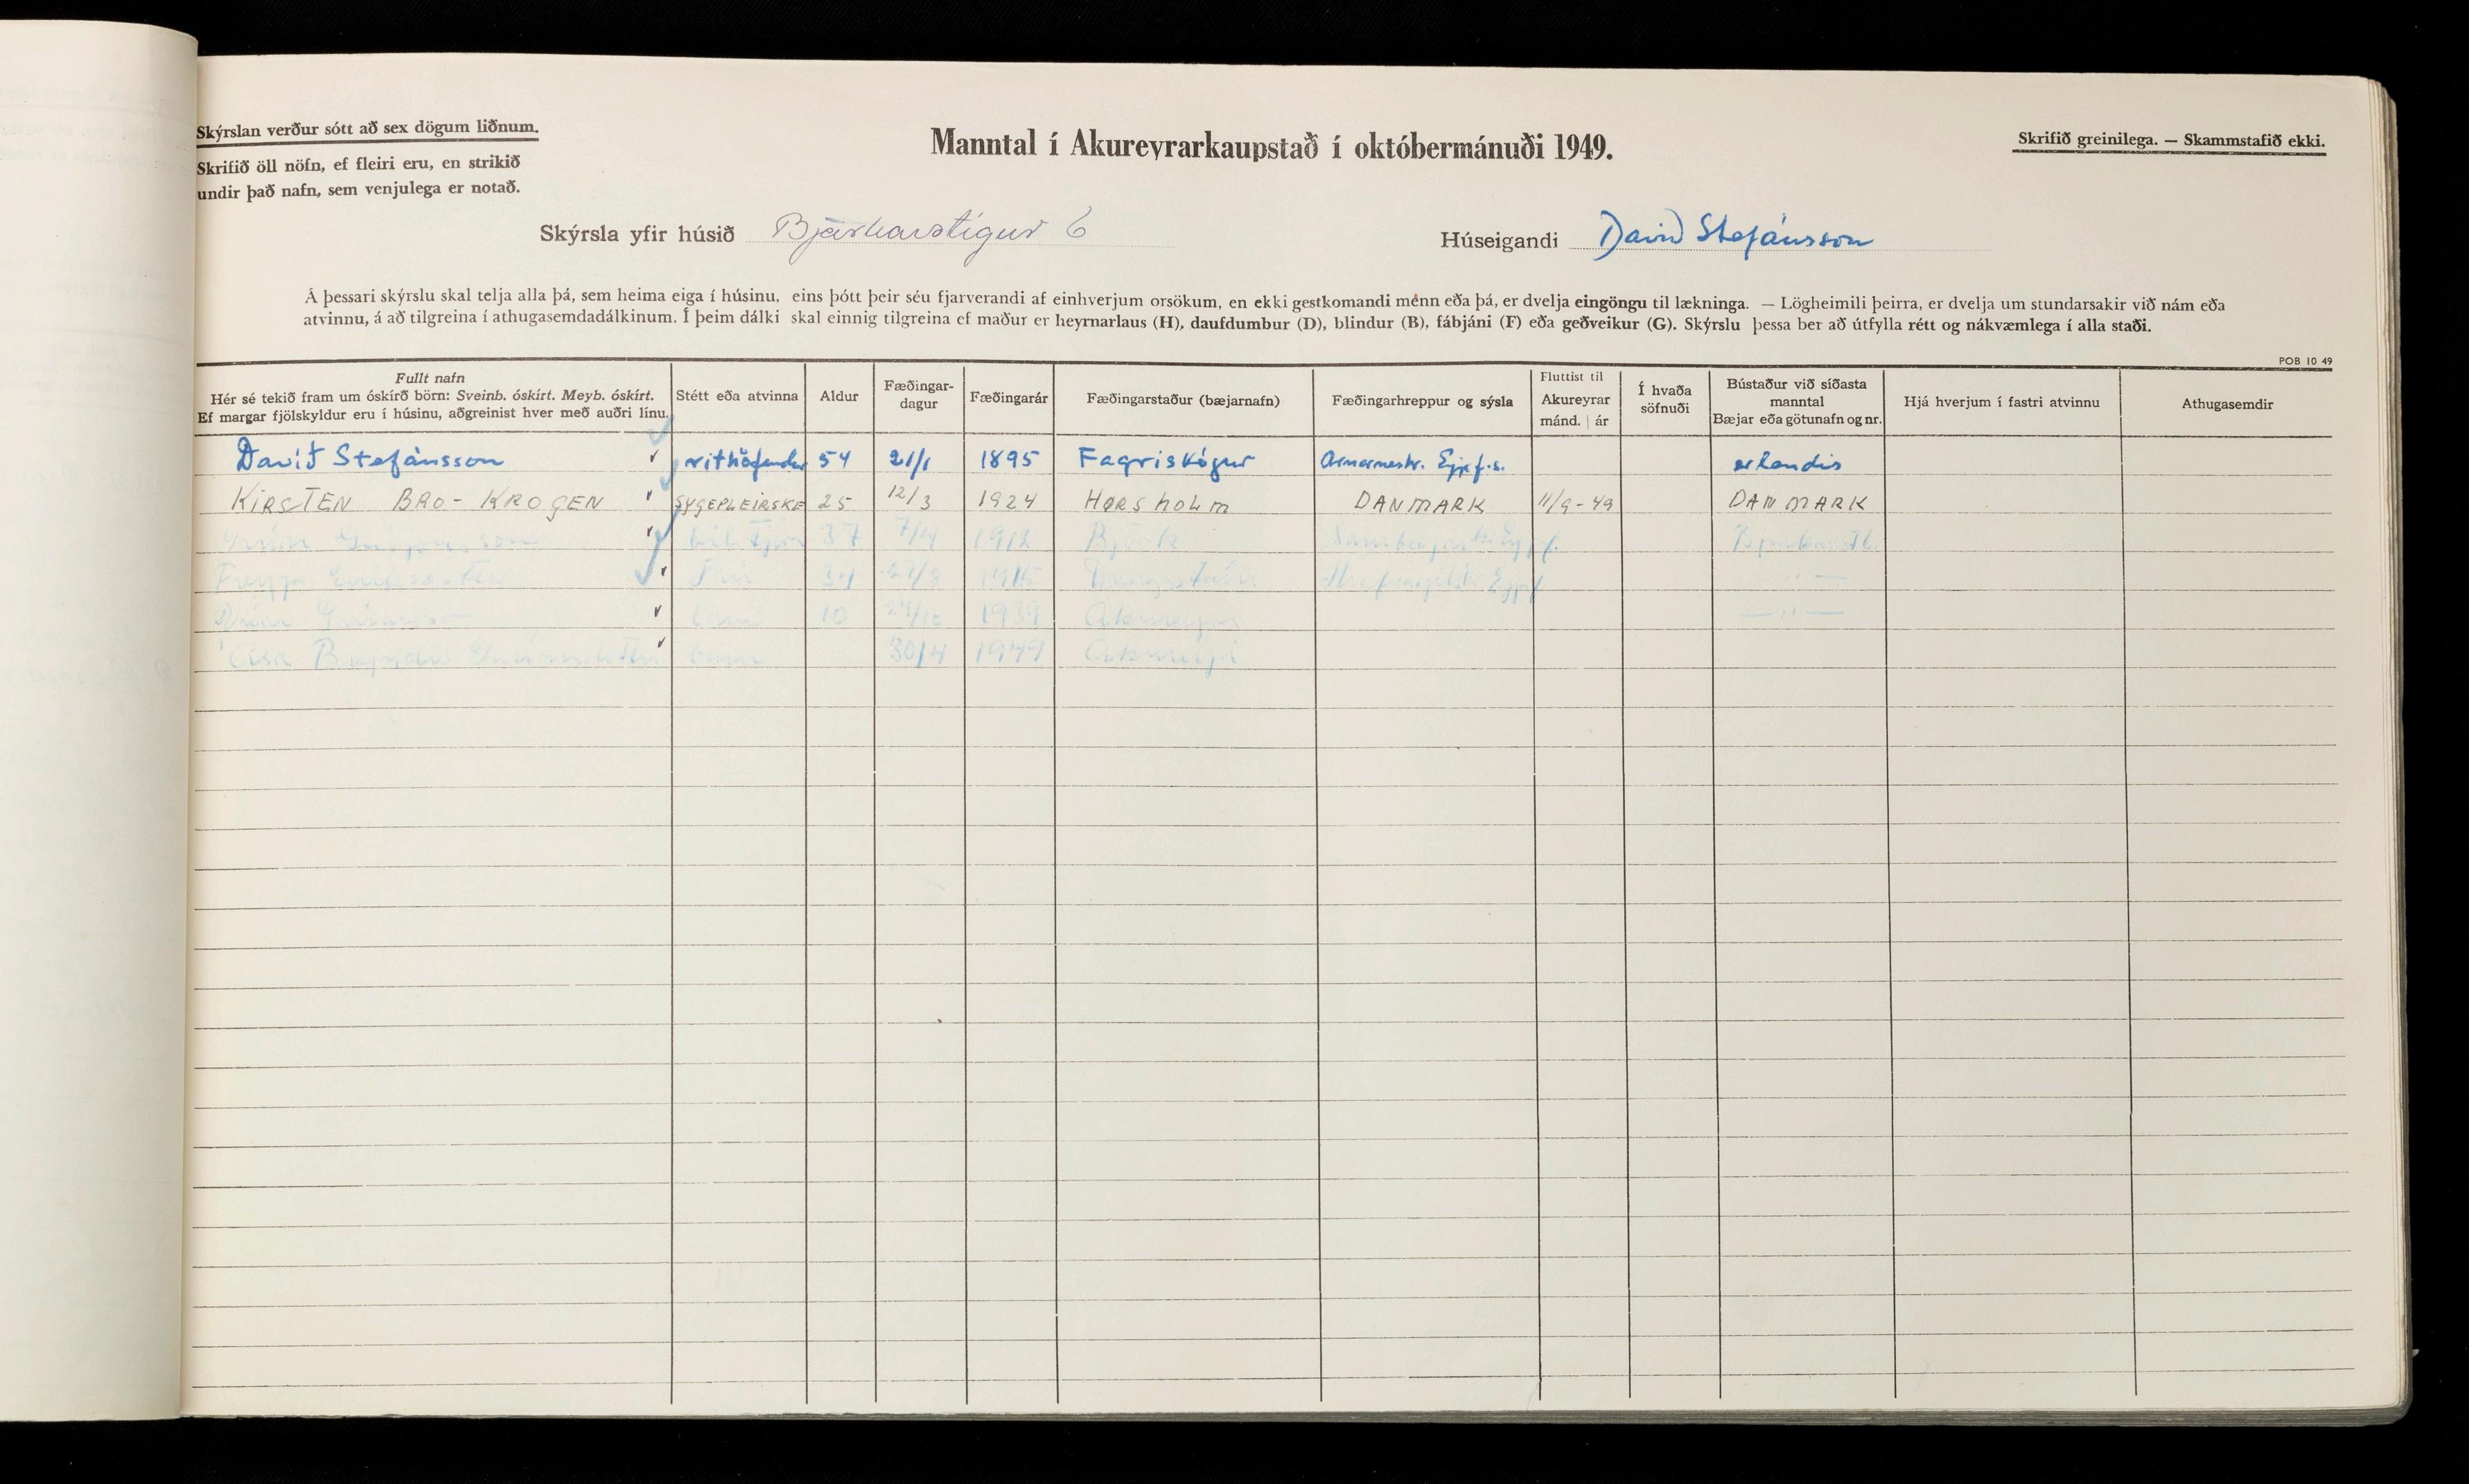 Skýrslan verður sótt að sex dögum liðnum.
Skrifið öll nöfn, ef fleiri eru, en strikið
undir það nafn, sem venjulega er notað.
Manntal í Akureyrarkaupstað í októbermánuði 1949.
Skrifið greinilega. — Skammstafið ekki.
Skýrsla yfir húsið Bjarkarstígur 6
Húseigandi Davíð Stefánsson
Á þessari skýrslu skal telja alla þá, sem heima eiga í húsinu, eins þótt þeir séu fjarverandi af einhverjum orsökum, en ekki gestkomandi menn eða þá, er dvelja eingöngu til lækninga. — Lögheimili þeirra, er dvelja um stundarsakir við nám eða
atvinnu, á að tilgreina í athugasemdadálkinum. Í þeim dálki skal einnig tilgreina ef maður er heyrnarlaus (H), daufdumbur (D), blindur (B), fábjáni (F) eða geðveikur (G). Skýrslu þessa ber að útfylla rétt og nákvæmlega í alla staði.
POB 10 49
Fullt nafn
Hér sé tekið fram um óskírð börn: Sveinb. óskírt. Meyb. óskírt.
Ef margar fjölskyldur eru í húsinu, aðgreinist hver með auðri línu.
Stétt eða atvinna
Aldur
Fæðingar-
dagur
Fæðingarár
Fæðingarstaður (bæjarnafn)
Fæðingarhreppur og sýsla
Fluttist til
Akureyrar
mánd. | ár
Í hvaða
söfnuði
Bústaður við síðasta
manntal
Bæjar eða götunafn og nr.
Hjá hverjum í fastri atvinnu
Athugasemdir
Davíð Stefánsson rithöfundur 54 21/1 1895 Fagriskógur Arnarnestr. Eyjf.s. erlendis
KIRSTEN BRO-KROGEN SYGEPLEIRSKE 25 12/3 1924 HØRSHOLM DANMARK 11/9-49 DANMARK
37 7/4 1912 Björk
Freyja 34 1915
10 24/10 1939 Akureyri
Ása barn 30/4 1949 Akureyri